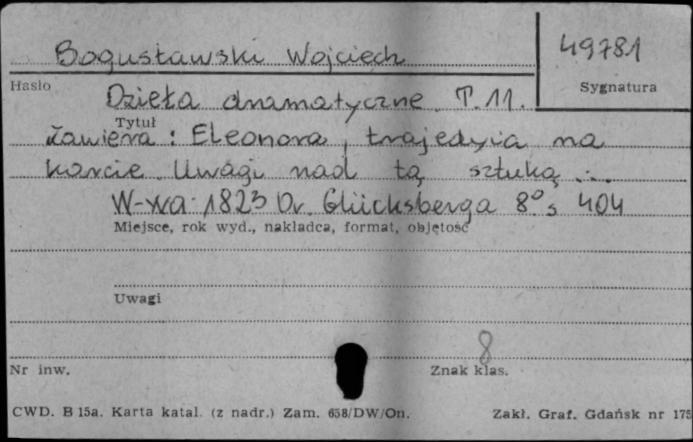 Bogusławski Wojciech
49781
Hasło
Sygnatura
Dzieła dramatyczne. T. 11.
Tytuł
zawiera: Eleonora, trajedyia na
karcie. Uwagi nad tą sztuką ...
W-wa 1823 Dr. Glücksberga 8° s 404
Miejsce, rok wyd., nakładca, format, objętość
Uwagi
8
Nr inw.
Znak klas.
CWD. B 15a. Karta katal. (z nadr.) Zam. 658/DW/On.
Zakł. Graf. Gdańsk nr 175